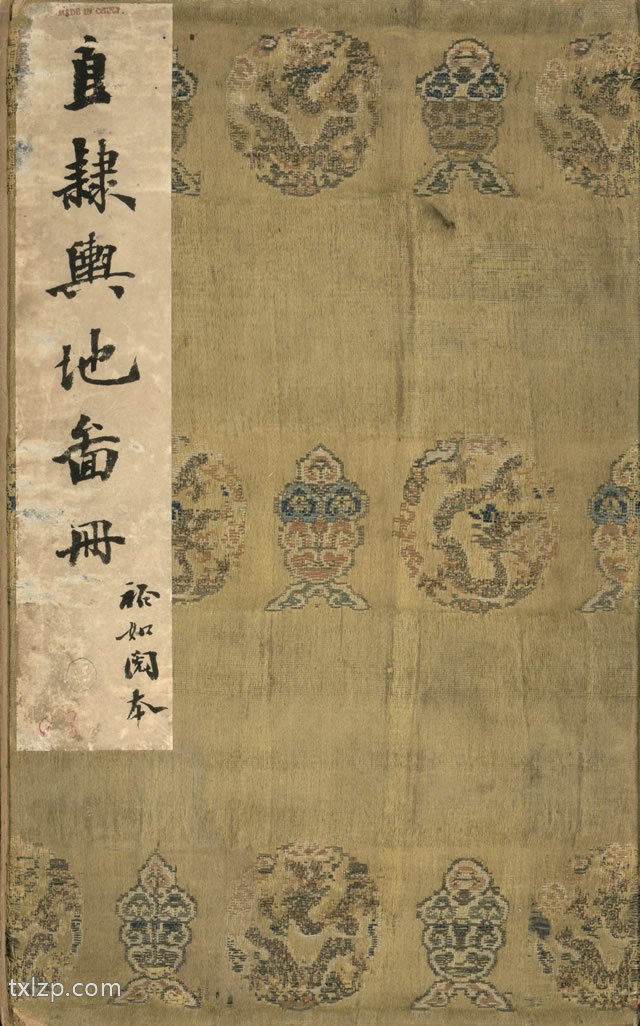 MADE IN CHINA.
直隸輿地畣冊
裕如閱本
txlzp.com